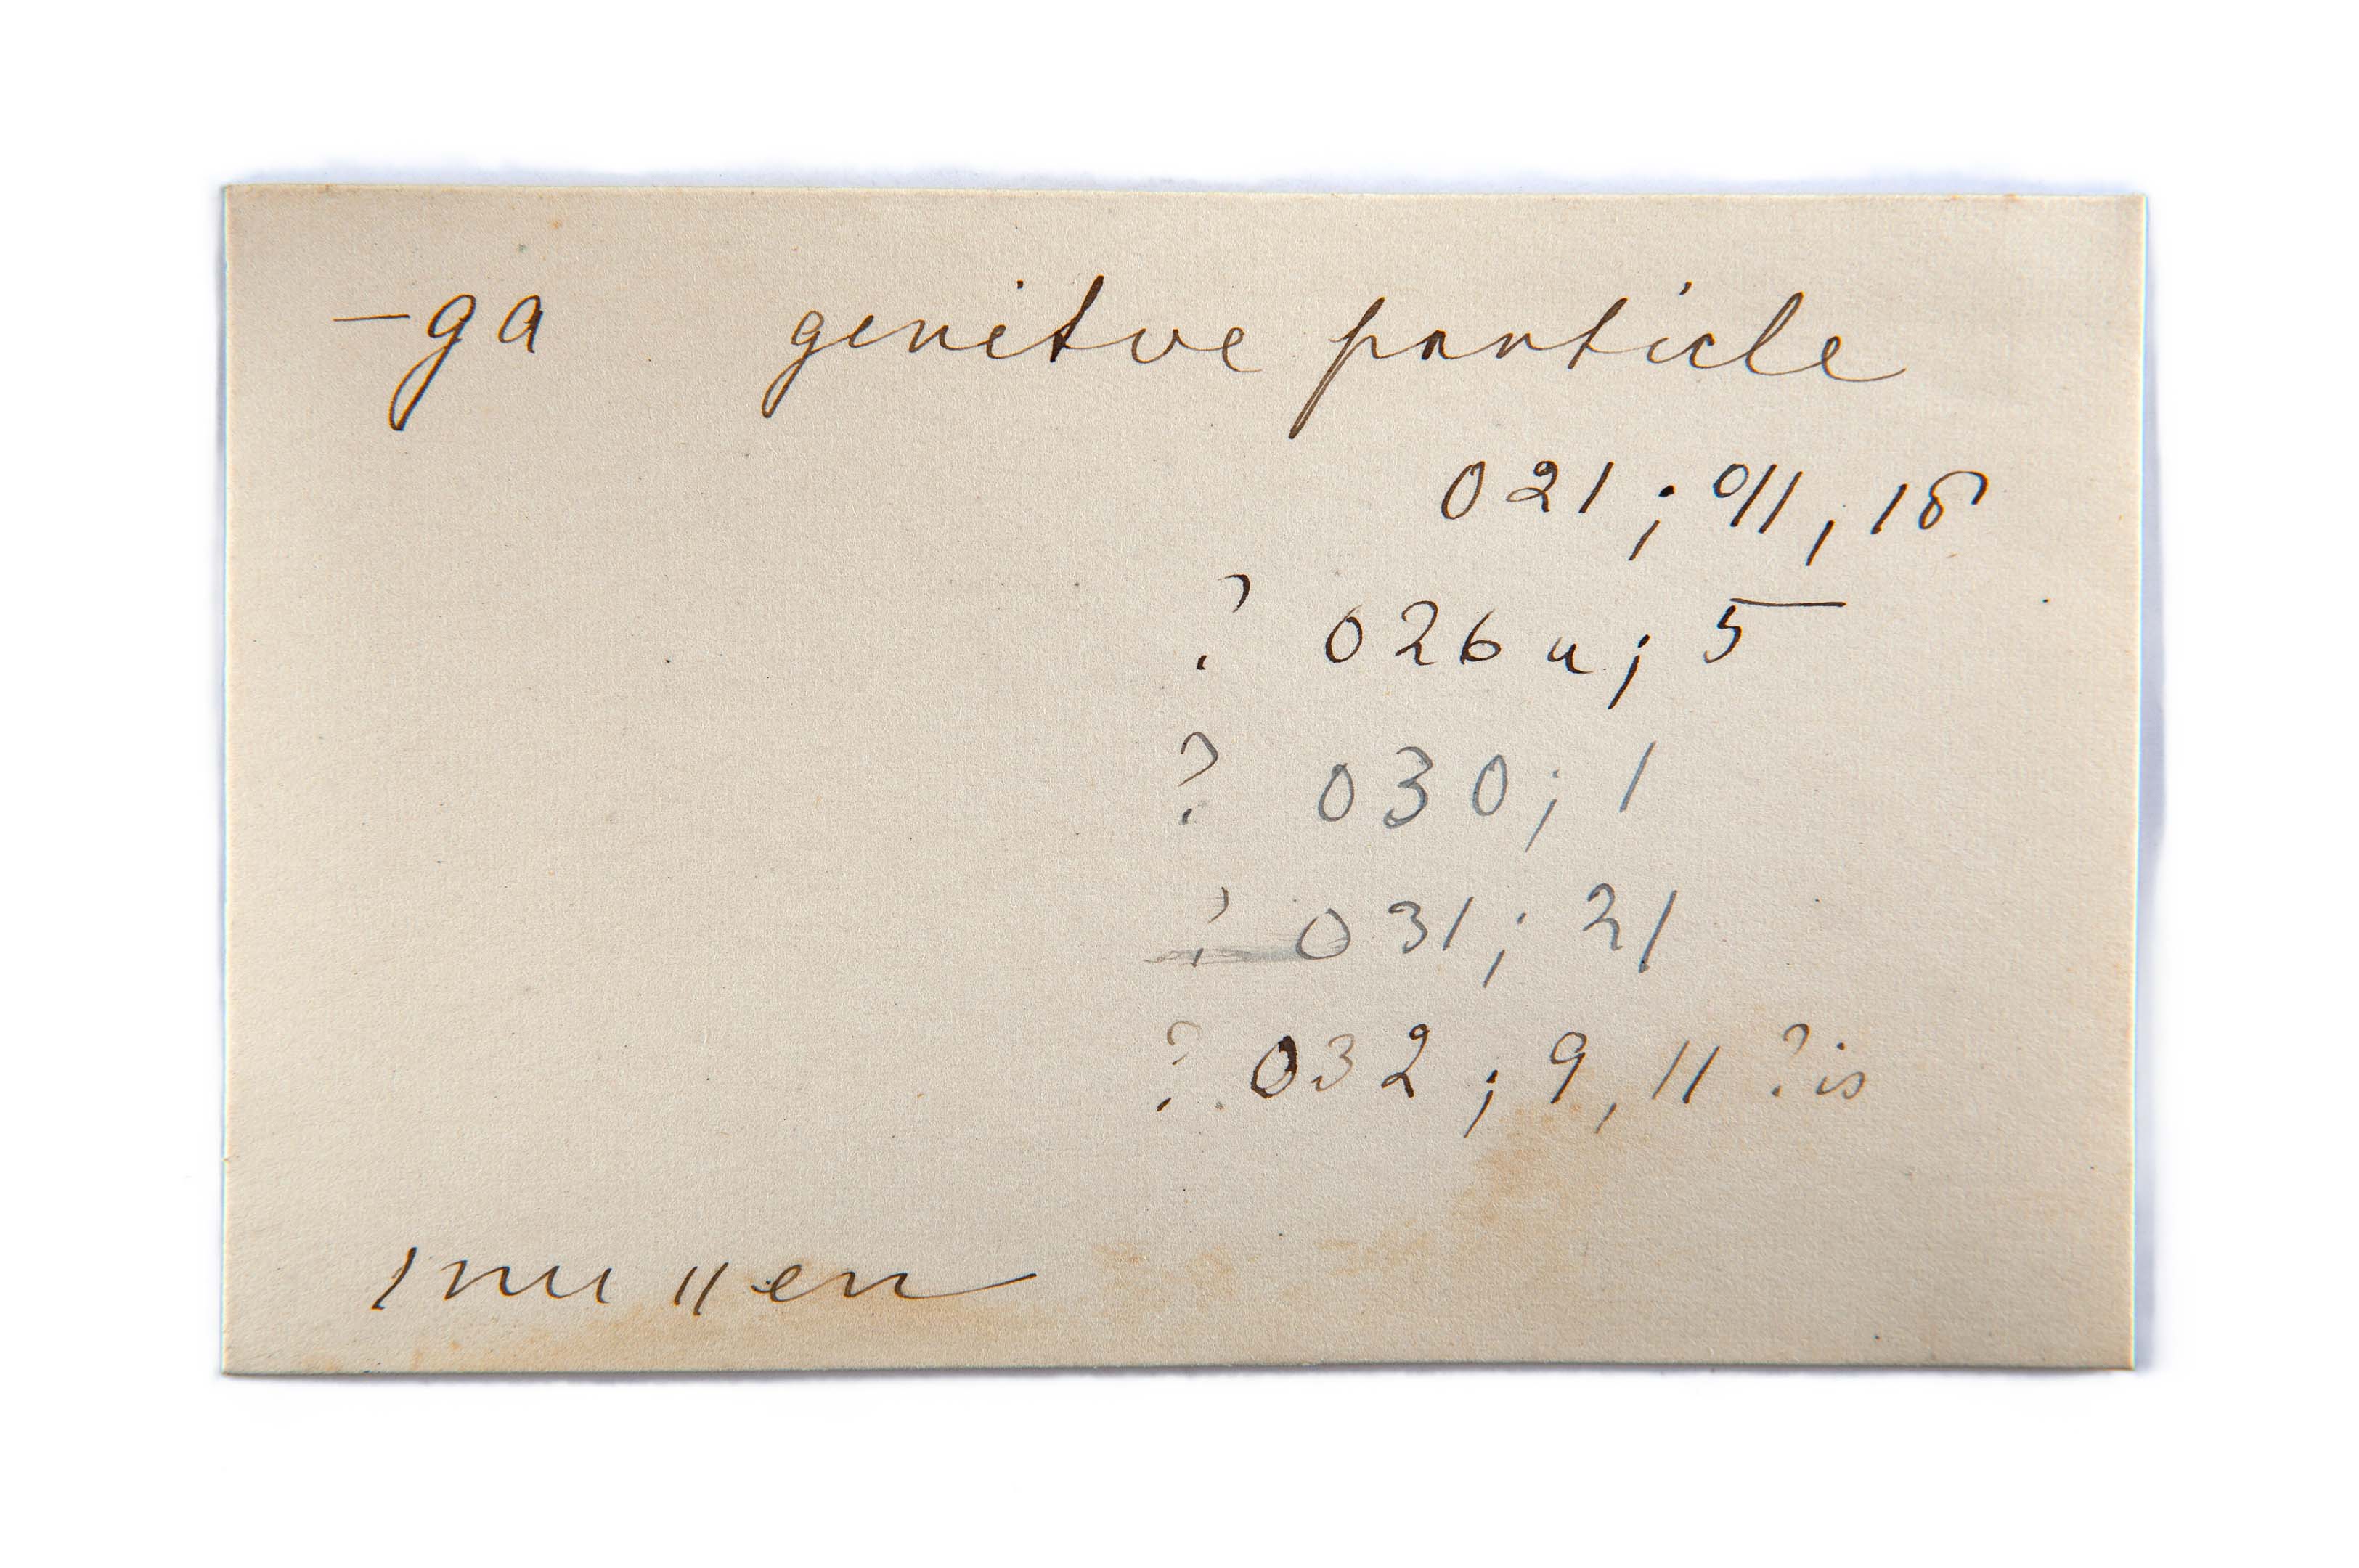 -ga genitve particle
021; 011, 18
? 026 a; 5
? 030; 1
? 031; 21
? 032; 9, 11 ? is